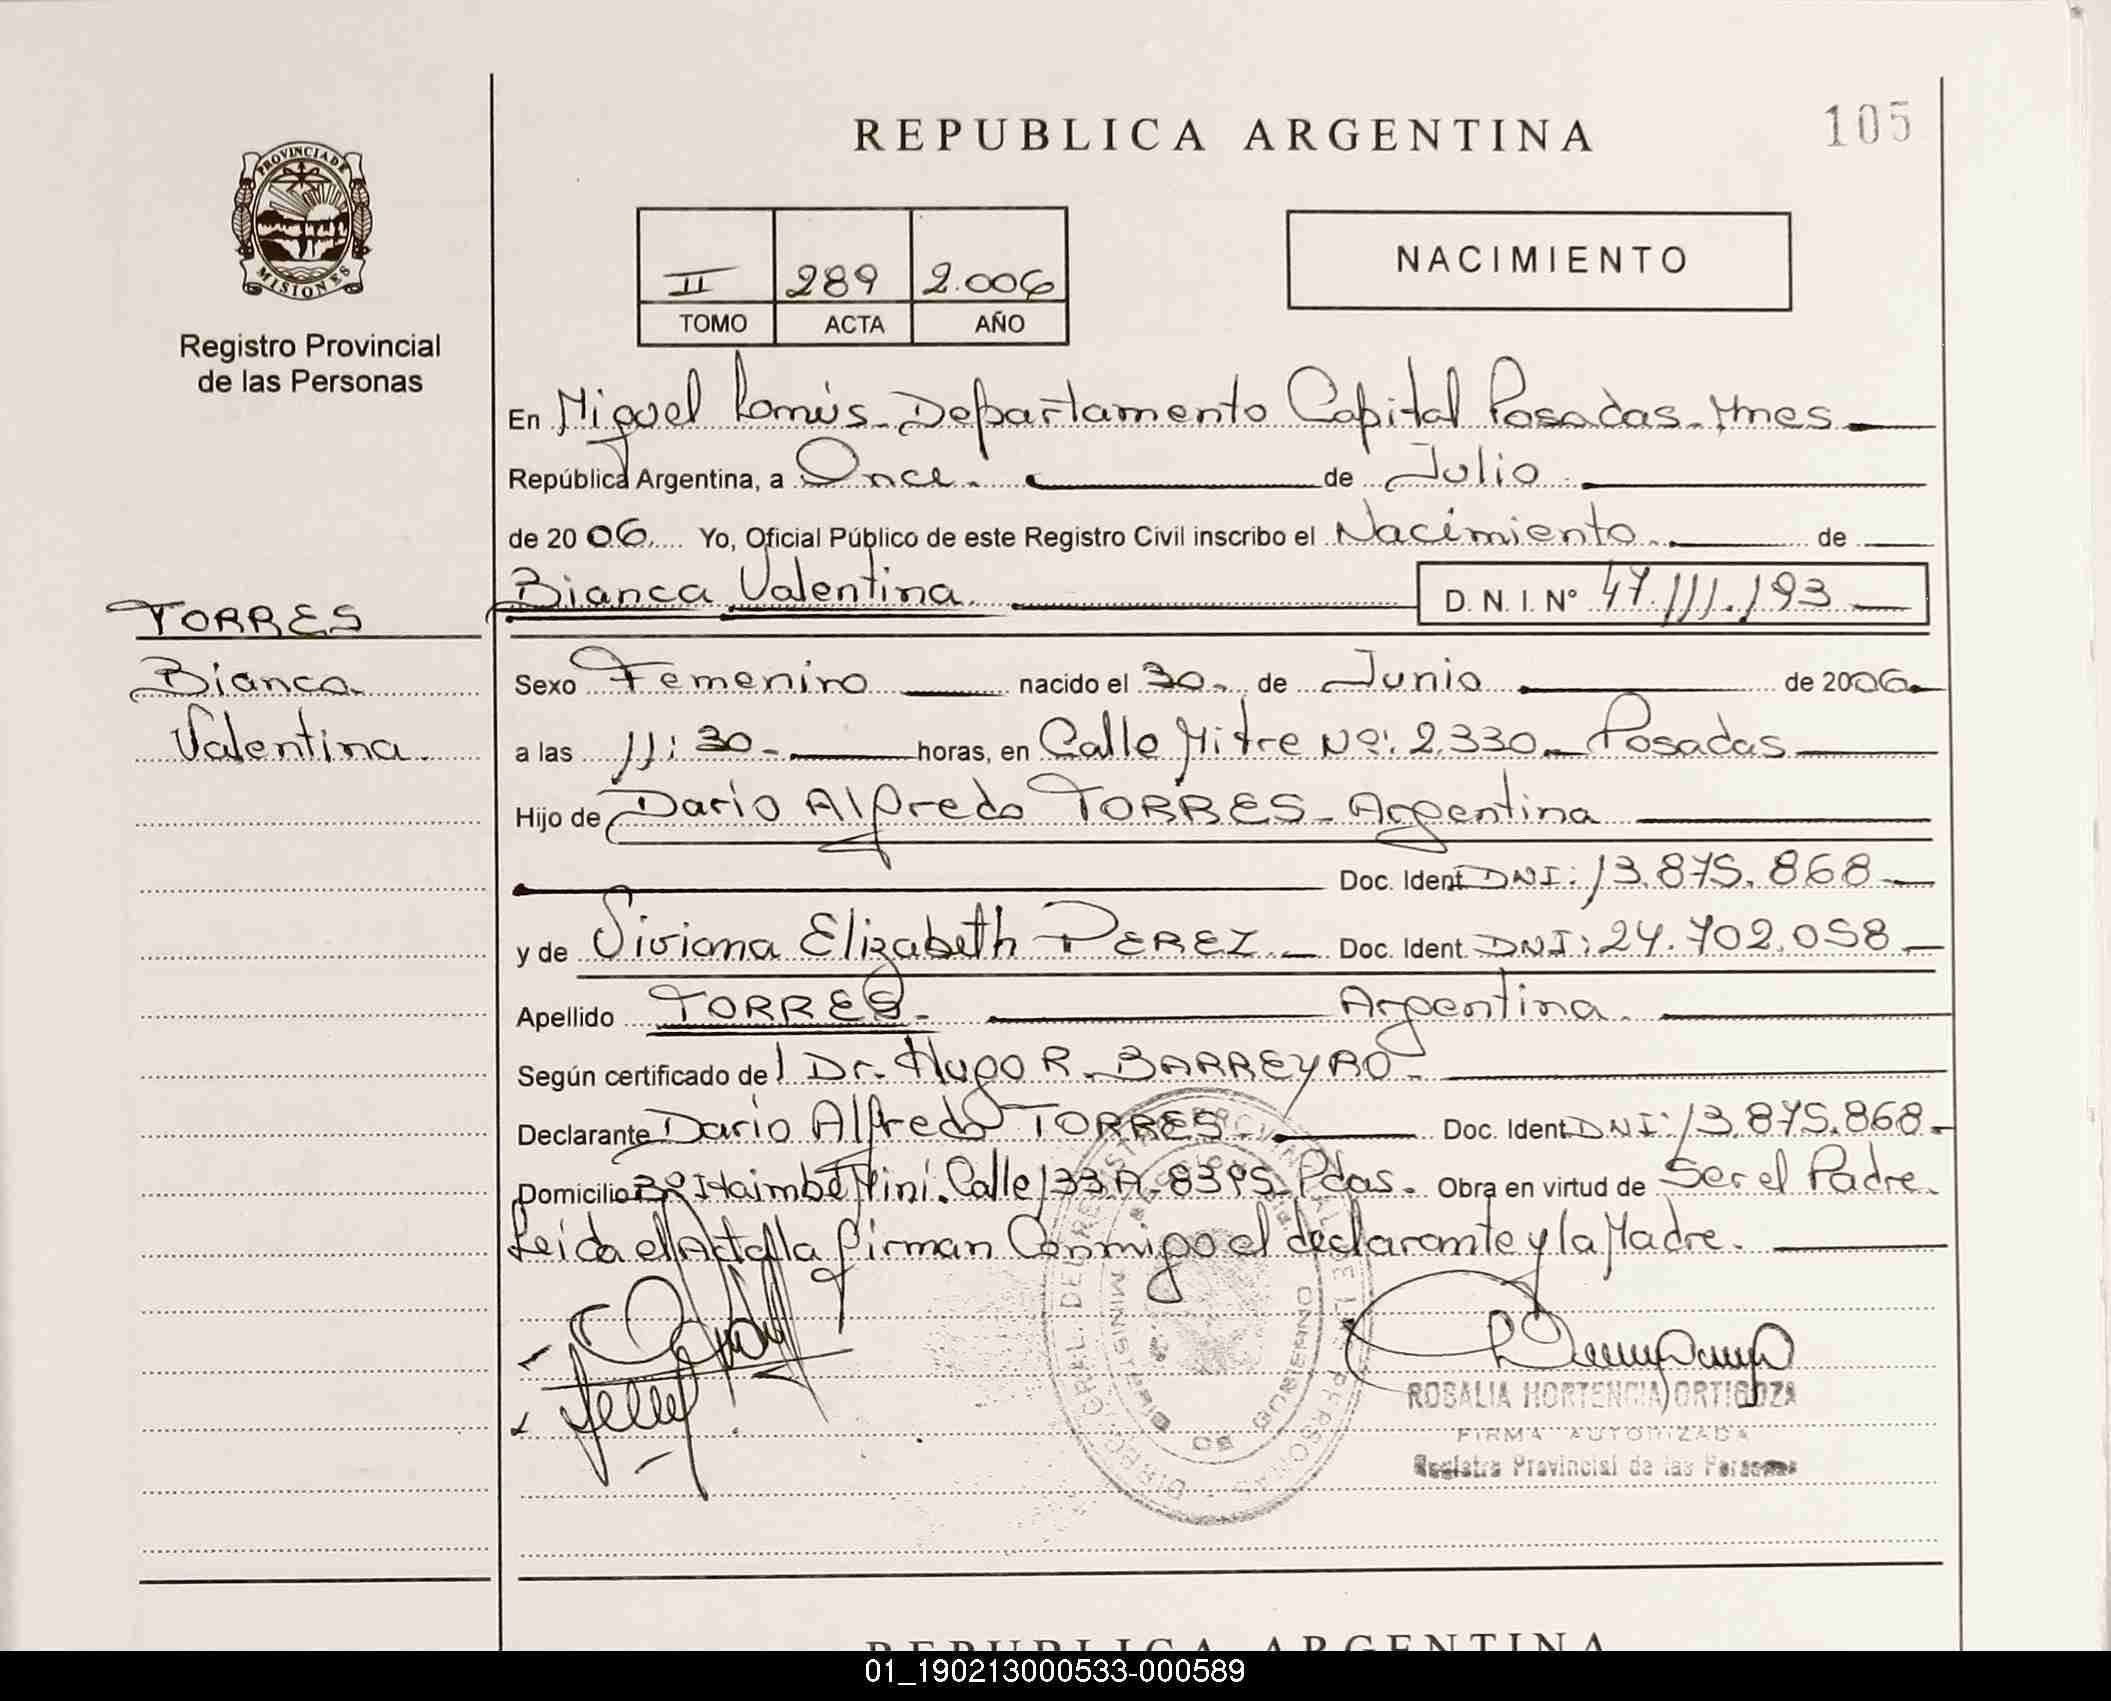 REPUBLICA ARGENTINA
105
PROVINCIA DE
MISIONES
Registro Provincial
de las Personas
NACIMIENTO
II 289 2.006
TOMO ACTA AÑO
En Miguel Lanús - Departamento Capital Posadas - Mnes
República Argentina, a Once. de Julio
de 2006. Yo, Oficial Público de este Registro Civil inscribo el Nacimiento. de
Bianca Valentina D. N. I. N° 47.111.193
TORRES
Bianca
Valentina.
Sexo Femenino nacido el 30 - de Junio de 2006
a las 11:30 - horas, en Calle Mitre Nº: 2.330 - Posadas
Hijo de Darío Alfredo TORRES - Argentina
Doc. Ident. DNI: 13.875.868
y de Viviana Elizabeth PEREZ. - Doc. Ident. DNI: 24.702.058
Apellido TORRES - Argentina.
Según certificado del Dr. Hugo R. BARREYRO -
Declarante Darío Alfredo TORRES - Doc. Ident. DNI: 13.875.868 -
Domicilio Bº Itaimbé Miní. Calle 133 A - 8395 - Pdas. Obra en virtud de Ser el Padre.
Leida el Acta la firman Conmigo el declarante y la Madre.
MINISTERIO DE GOBIERNO
ROSALIA HORTENCIA ORTIGOZA
FIRMA AUTORIZADA
Registro Provincial de las Personas
REPUBLICA ARGENTINA
01_190213000533-000589